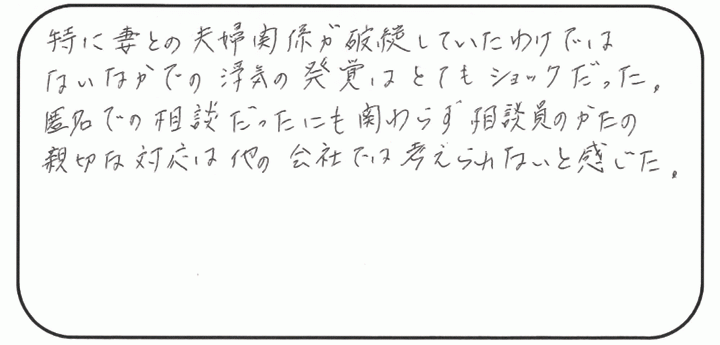 特に妻との夫婦関係が破綻していたわけでは
ないなかでの浮気の発覚はとてもショックだった。
匿名での相談だったにも関わらず相談員のかたの
親切な対応は他の会社では考えられないと感じた。